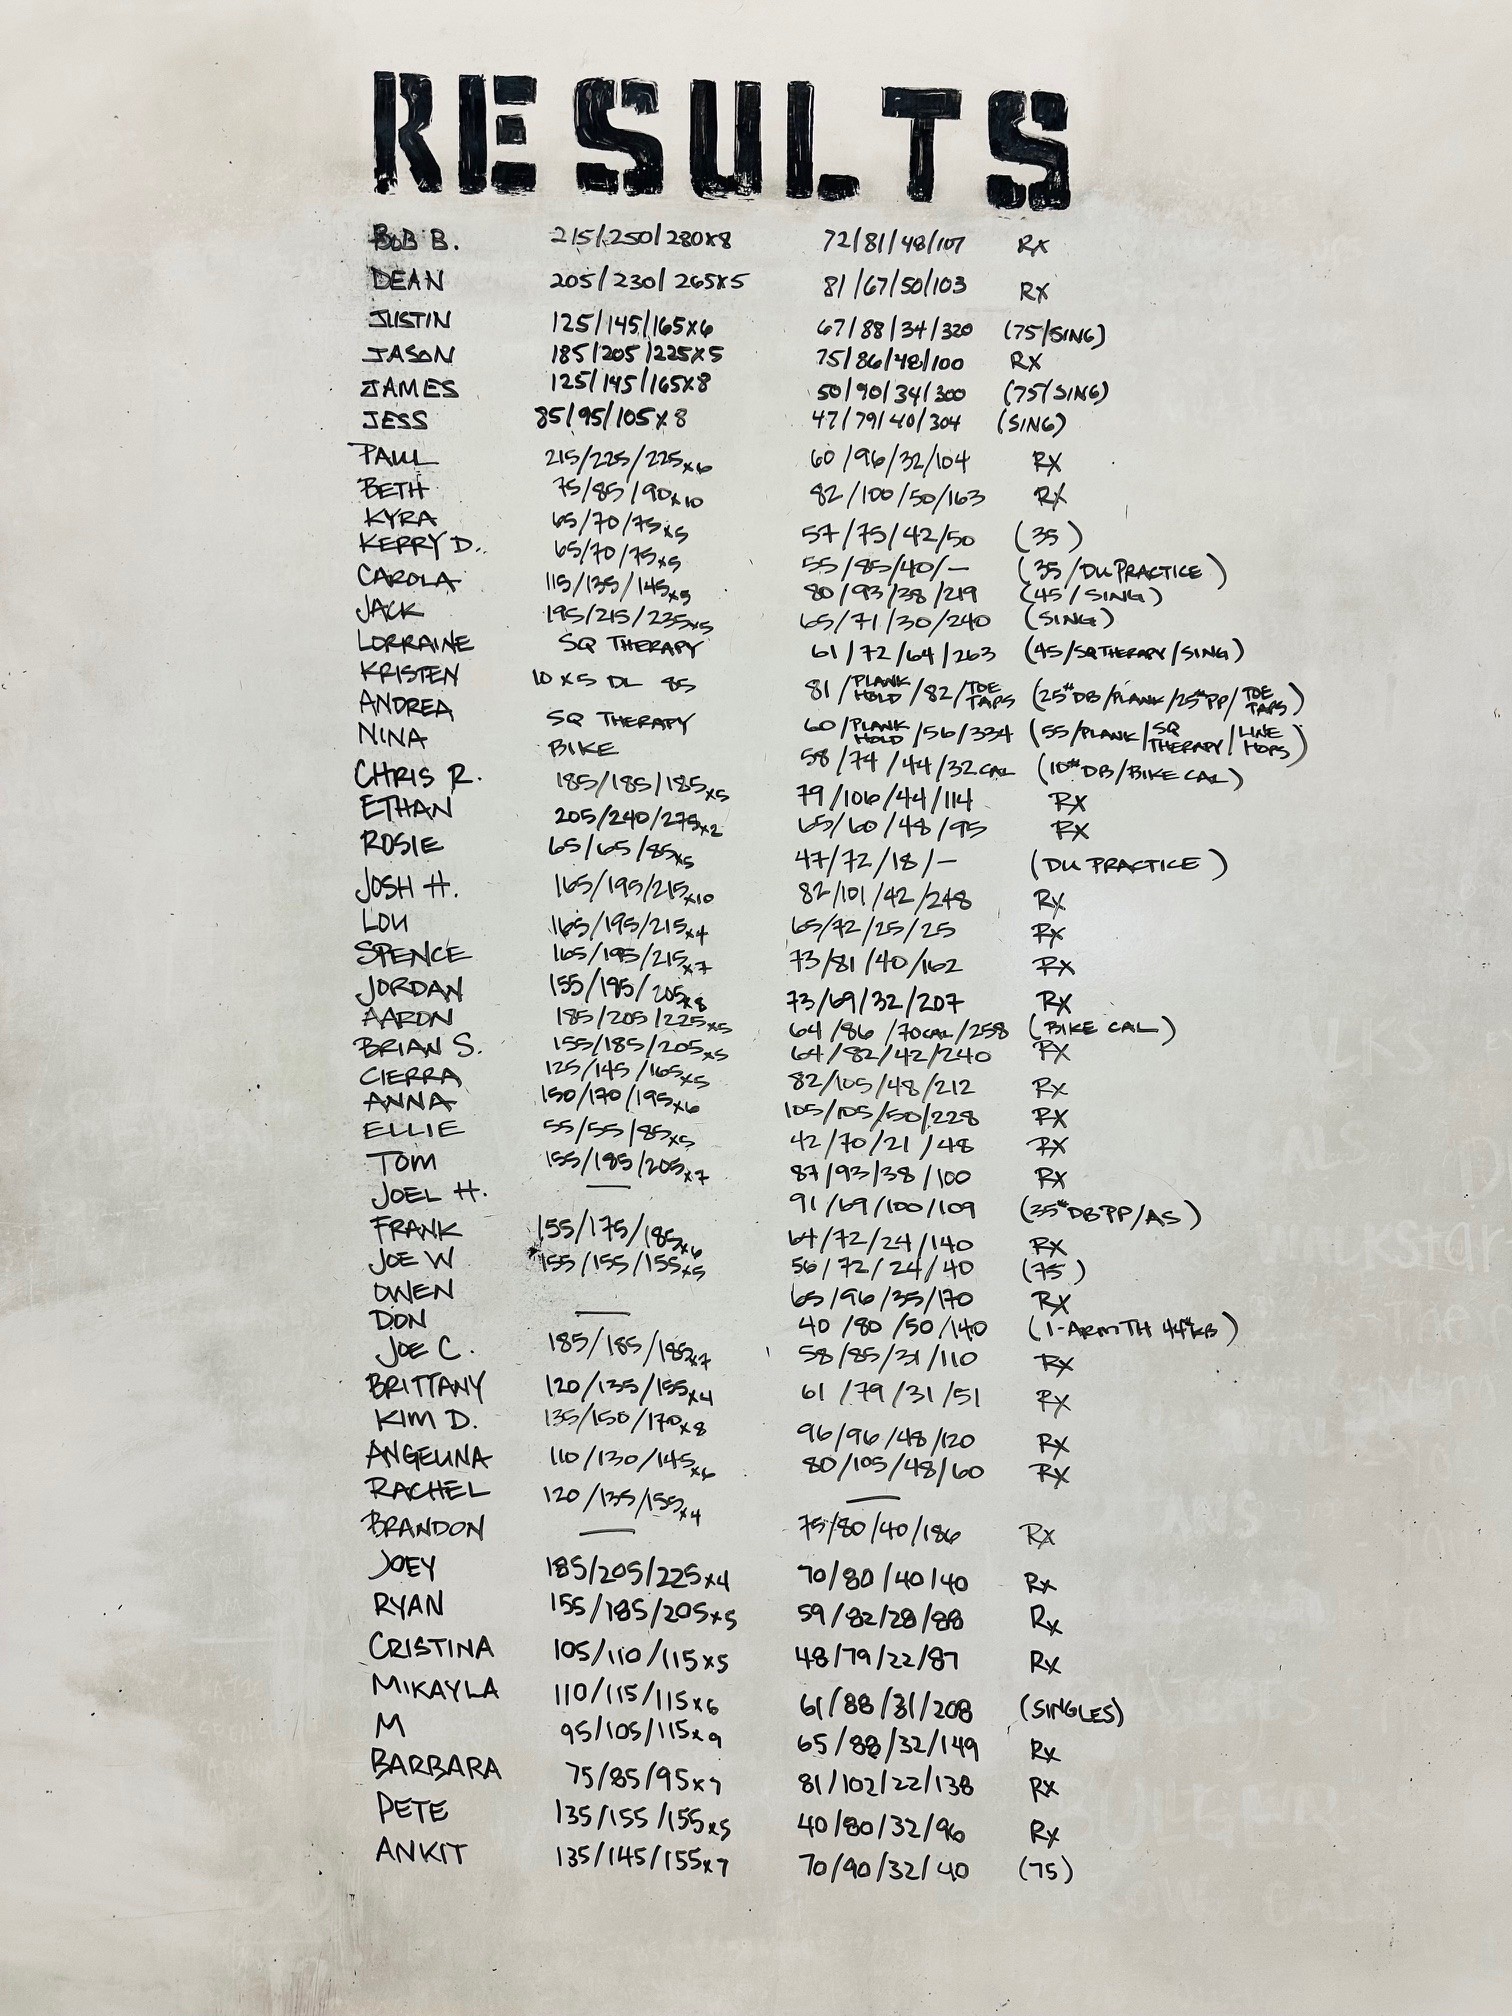 RESULTS
BOB B. 215/250/280x8 72/81/48/107 RX
DEAN 205/230/265x5 81/67/50/103 RX
JUSTIN 125/145/165x6 67/88/34/320 (75/SING)
JASON 185/205/225x5 75/86/48/100 RX
JAMES 125/145/165x8 50/90/34/300 (75/SING)
JESS 85/95/105x8 47/79/40/304 (SING)
PAUL 215/225/225x6 60/96/32/104 RX
BETH 75/85/90x10 82/100/50/163 RX
KYRA 65/70/75x5 57/75/42/50 (35)
KERRY D. 65/70/75x5 55/85/40/— (35/DU PRACTICE)
CAROLA 115/135/145x5 80/93/38/219 (45/SING)
JACK 195/215/235x5 65/71/30/240 (SING)
LORRAINE SQ THERAPY 61/72/64/263 (45/SQ THERAPY/SING)
KRISTEN 10x5 DL 85 81/PLANK HOLD/82/TOE TAPS (25# DB/PLANK/25# PP/TOE TAPS)
ANDREA SQ THERAPY 60/PLANK HOLD/56/334 (55/PLANK/SQ THERAPY/LINE HOPS)
NINA BIKE 58/74/44/32 CAL (10# DB/BIKE CAL)
CHRIS R. 185/185/185x5 79/106/44/114 RX
ETHAN 205/240/275x2 65/60/48/95 RX
ROSIE 65/65/85x5 47/72/18/— (DU PRACTICE)
JOSH H. 165/195/215x10 82/101/42/248 RX
LOU 165/195/215x4 65/72/25/25 RX
SPENCE 165/195/215x7 73/81/40/162 RX
JORDAN 155/185/205x8 73/69/32/207 RX
AARON 185/205/225x5 64/86/70CAL/258 (BIKE CAL)
BRIAN S. 155/185/205x5 64/82/42/240 RX
CIERRA 125/145/165x5 82/105/48/212 RX
ANNA 150/170/195x6 105/105/50/228 RX
ELLIE 55/55/85x5 42/70/21/48 RX
TOM 155/185/205x7 87/93/38/100 RX
JOEL H. — 91/69/100/109 (35# DB PP/AS)
FRANK 155/175/185x6 64/72/24/140 RX
JOE W 155/155/155x5 56/72/24/40 (75)
OWEN 65/96/35/170 RX
DON — 40/80/50/140 (1-ARM TH 44# KB)
JOE C. 185/185/185x7 58/85/31/110 RX
BRITTANY 120/135/155x4 61/79/31/51 RX
KIM D. 135/150/170x8 96/96/48/120 RX
ANGELINA 110/130/145x6 80/105/48/60 RX
RACHEL 120/135/155x4 —
BRANDON — 75/80/40/186 RX
JOEY 185/205/225x4 70/80/40/40 Rx
RYAN 155/185/205x5 59/82/28/88 Rx
CRISTINA 105/110/115x5 48/79/22/87 Rx
MIKAYLA 110/115/115x6 61/88/31/208 (SINGLES)
M 95/105/115x9 65/88/32/149 Rx
BARBARA 75/85/95x7 81/102/22/138 Rx
PETE 135/155/155x5 40/80/32/96 Rx
ANKIT 135/145/155x7 70/90/32/40 (75)